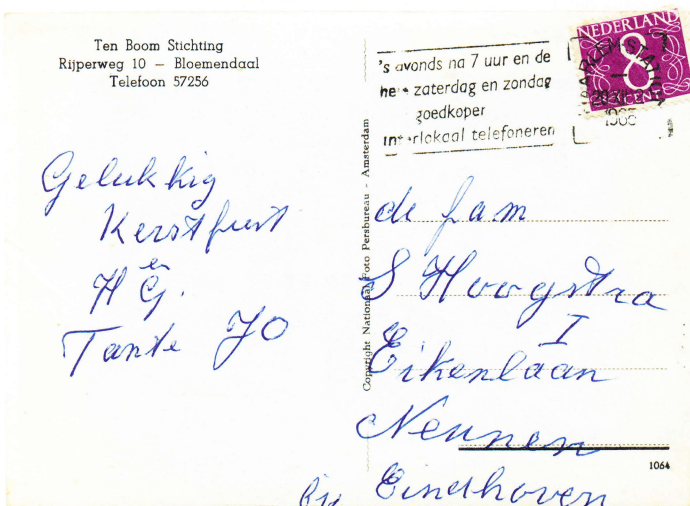 Ten Boom Stichting
Rijperweg 10 — Bloemendaal
Telefoon 57256
's avonds na 7 uur en de
hele zaterdag en zondag
goedkoper
interlokaal telefoneren
NEDERLAND
8
CENT
HAARLEM-STATION
1965
Gelukkig
Kerstfeest
en
H G.
Tante JO
Copyright Nationaal Foto Persbureau - Amsterdam
de fam
S Hoogstra
I
Eikenlaan
Neunen
bij Eindhoven
1064